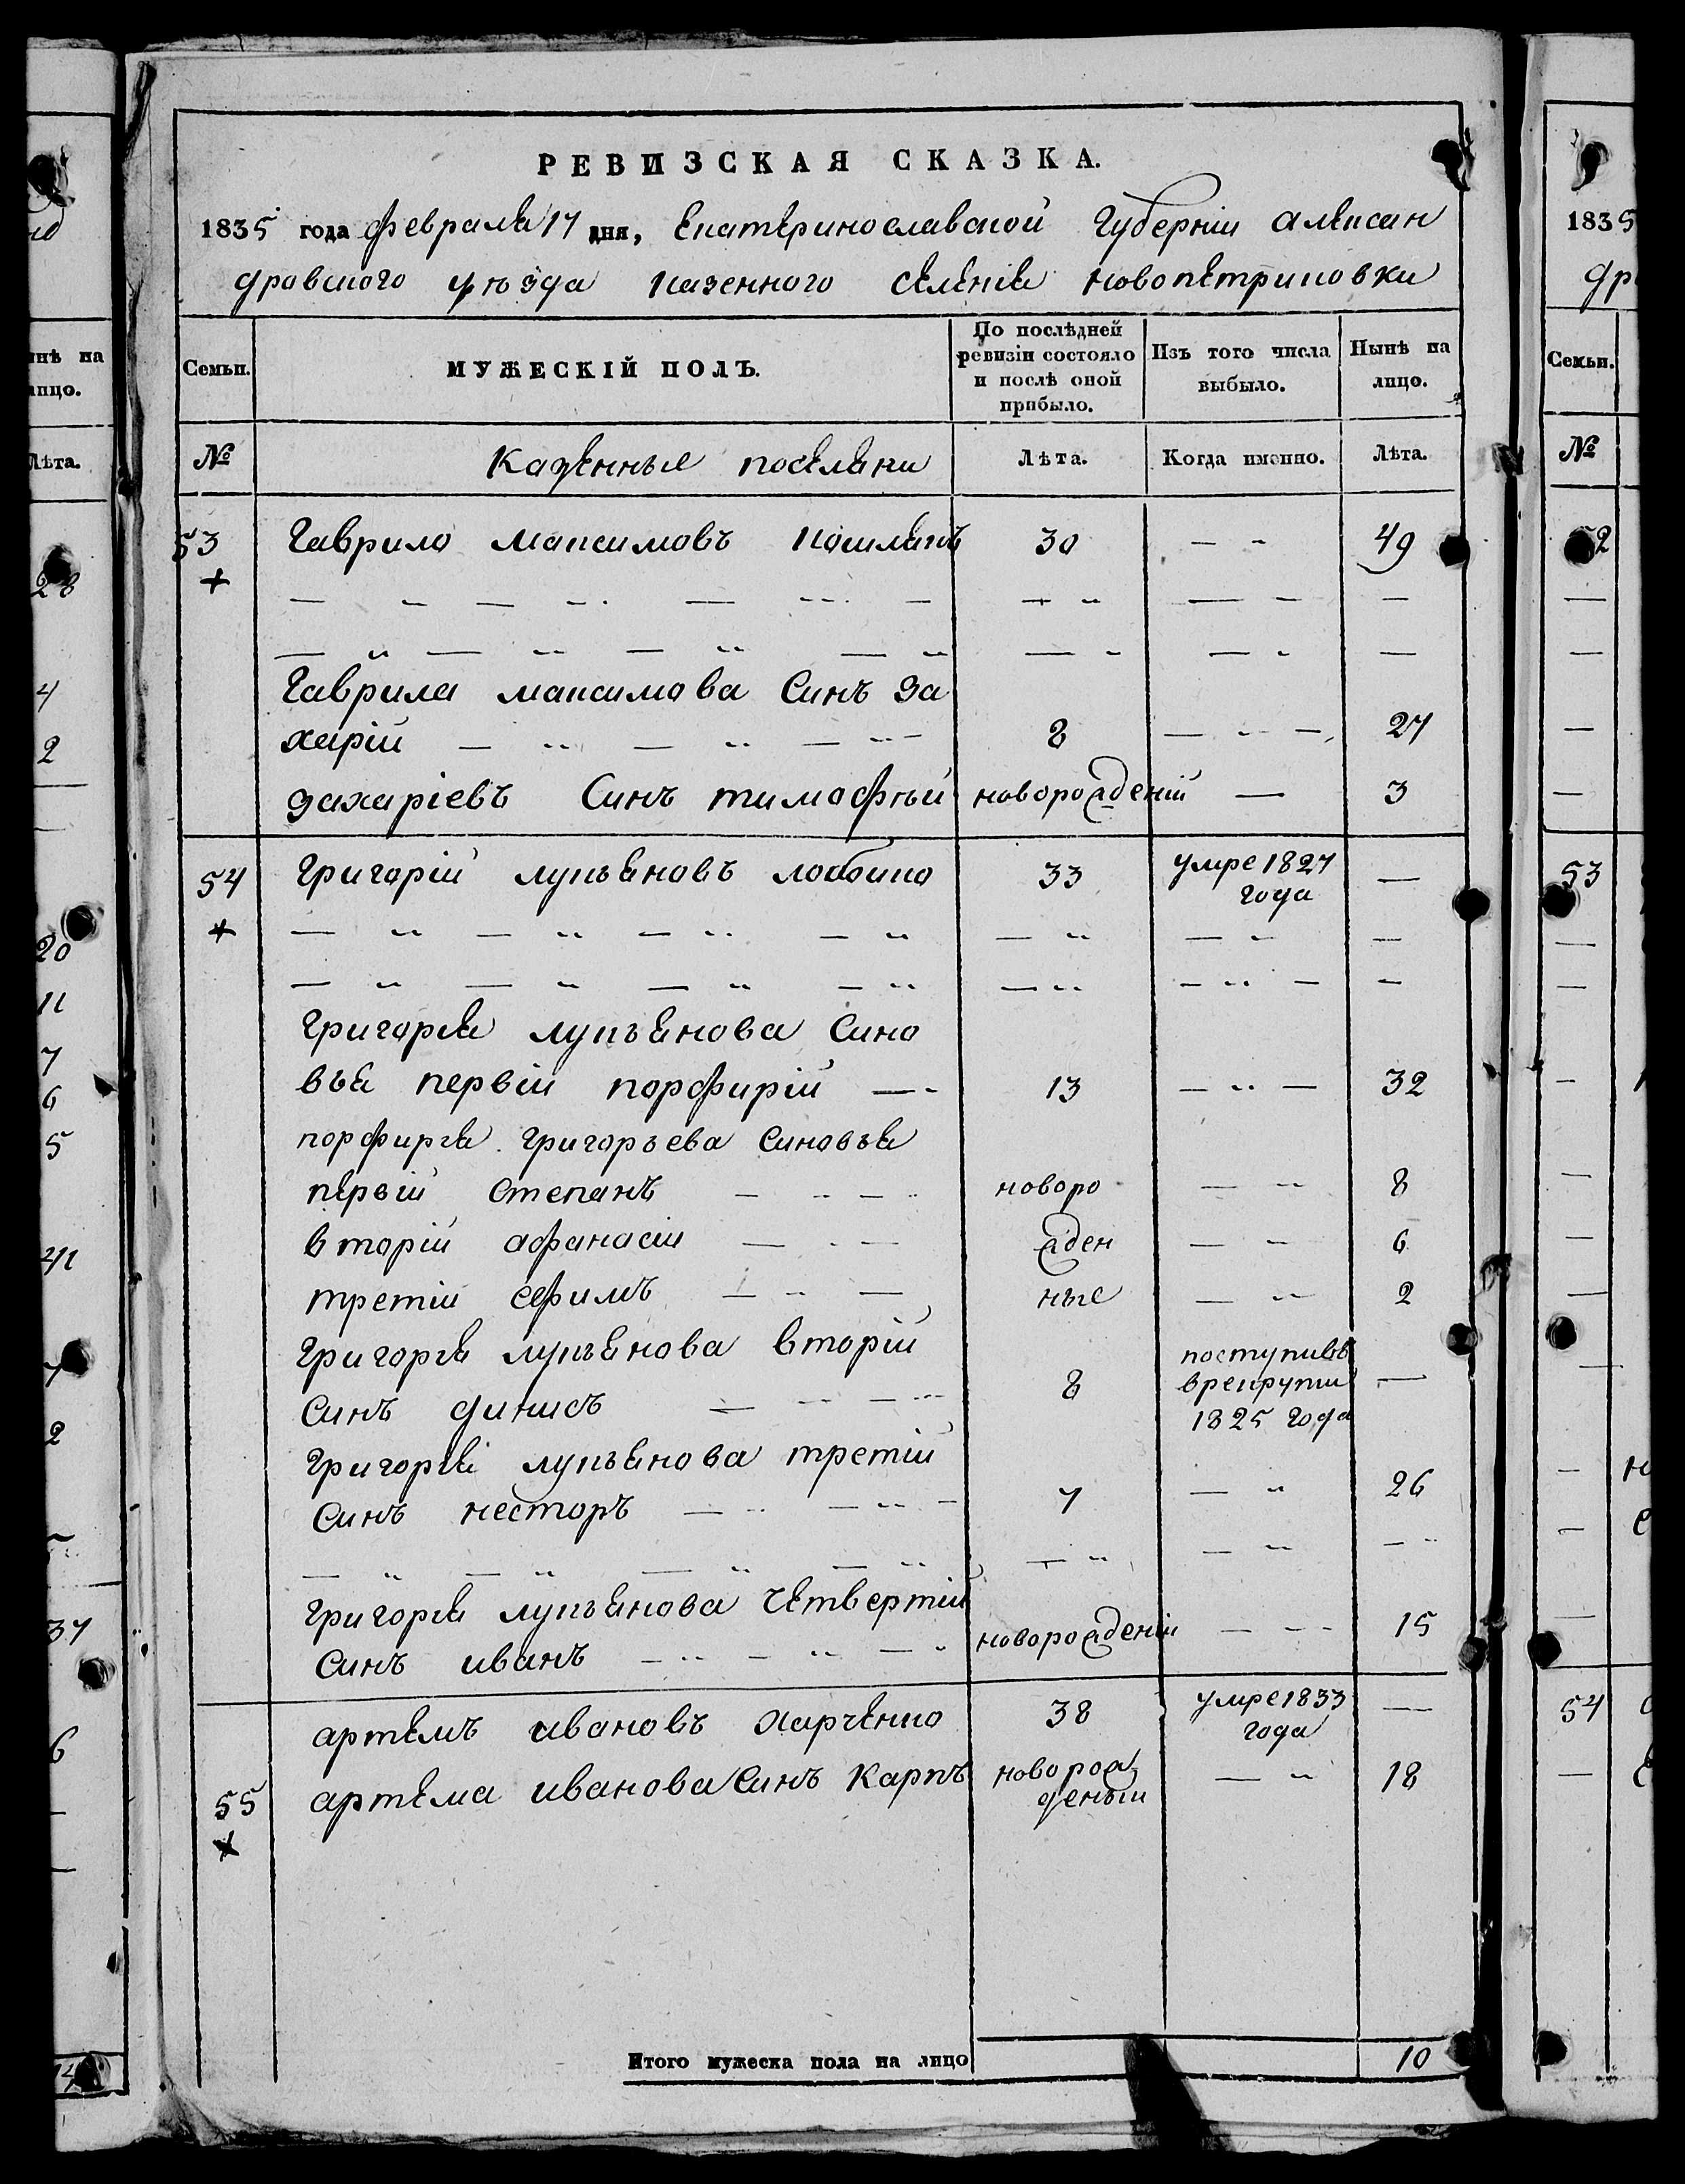 РЕВИЗСКАЯ СКАЗКА.
1835 года февраля 17 дня, Екатеринославской Губерніи Алексан
дровского уѣзда казенного селенія новопетриковки
Семьи. МУЖЕСКІЙ ПОЛЪ. По послѣдней ревизіи состояло и послѣ оной прибыло. Изъ того числа выбыло. Нынѣ на лицо.
№ Казенные поселяни Лѣта. Когда именно. Лѣта.
53 Гаврило максимовъ 30 49
Гаврила максимова Синъ За
харій 8 27
захаріевъ Синъ тимофѣй новорожденій 3
54 Григорій лукъяновъ 33 умре 1827 года
Григорія лукъянова Сино
въя первій порфирій 13 32
порфирія Григоръева Синовъя
первій Степанъ новоро 8
вторій афанасій жден 6
третій ефимъ ные 2
Григорія лукъянова вторій
Синъ динисъ 8 поступивъ в рекрути 1825 года
Григорія лукъянова третій
Синъ несторъ 7 26
Григорія лукъянова четвертій
Синъ иванъ новорожденій 15
артемъ ивановъ харченко 38 умре 1833 года
55 артема иванова Синъ Карпъ новорож деный 18
Итого мужеска пола на лицо 10
нѣ на
лицо.
Лѣта.
28
4
2
20
11
7
6
5
41
2
37
6
1835
др
Семьи.
№
52
53
54